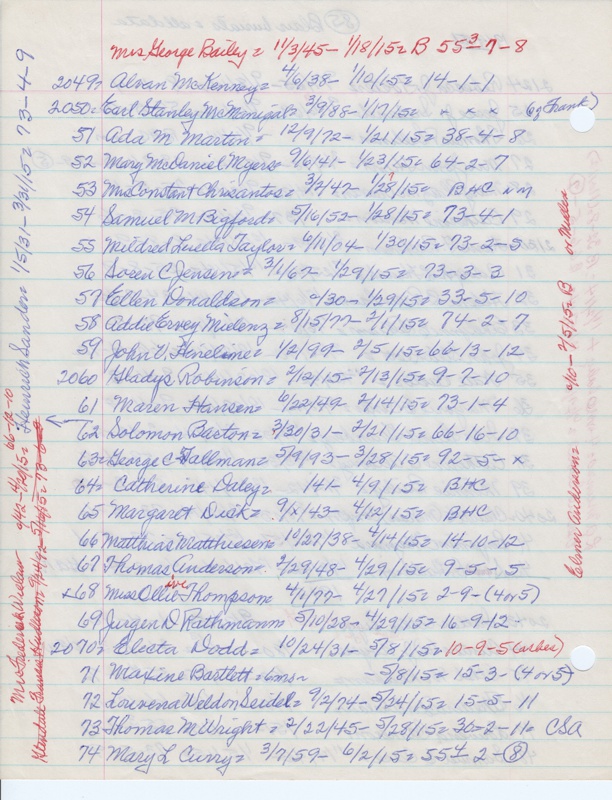 Mrs George Bailey = 11/3/45 - 1/18/15 = B 55 3 7 - 8
2049 = Alvan McKenney = 4/6/38 - 1/10/15 = 14-1-1
2050 = Earl Stanley McMenigal = 3/9/88 - 1/17/15 = x x x (of Frank)
51 Ada M Martin = 12/9/72 - 1/21/15 = 38-4-8
52 Mary McDaniel Myers = 9/6/41 - 1/23/15 = 64-2-7
53 Mrs Constant Chrisantos = 3/2/47 - 1/28/15 = BHC NM
54 Samuel M Bigford = 5/16/52 - 1/28/15 = 73-4-1
55 Mildred Luella Taylor = 6/11/04 - 1/30/15 = 73-2-5
56 Soren C Jensen = 3/1/67 - 1/29/15 = 73-3-3
57 Ellen Donaldson = -/30 - 1/29/15 = 33-5-10
58 Addie Ervey Mielenz = 8/15/77 - 2/1/15 = 74-2-7
59 John V. = 1/2/99 - 2/5/15 = 66-13-12
2060 Gladys Robinson = 2/12/15 - 2/13/15 = 9-7-10
61 Maren Hansen = 6/22/49 2/14/15 = 73-1-4
62 Solomon Barton = 3/30/31 - 2/21/15 = 66-16-10
63 = George C Tallman = 5/9/93 - 3/28/15 = 92-5-x
64 = Catherine Daley = 141 - 4/9/15 = BHC
65 Margaret Dick = 9/x/43 - 4/12/15 = BHC
66 Matthias Matthiesen = 10/27/38 - 4/14/15 = 14-10-12
67 Thomas Anderson = 2/29/48 - 4/29/15 = 9-5-5
x68 Miss Ollie Thompson = 4/1/77 - 4/27/15 = 2-9-(4 or 5)
69 Jurgen D Rathmann = 5/10/28 - 4/29/15 = 16-9-12
2070 = Electa Dodd = 10/24/31 - 5/8/15 = 10-9-5 (ashes)
71 Maxine Bartlett = 6 mo - 5/8/15 = 15-3-(4 or 5)
72 Louvena Weldon Seidel = 9/2/74 - 5/24/15 = 15-5-11
73 Thomas M Wright = 2/22/45 - 5/28/15 = 36-2-11 = CSA
74 Mary L Curry = 3/7/59 - 6/2/15 = 55 4 2-(8)
Heinrich Sander = 1/5/31 - 3/31/15 = 73-4-9
Mrs Frederick 66-12-10
Elmer Anderson = 2/10 - 2/5/15 = B